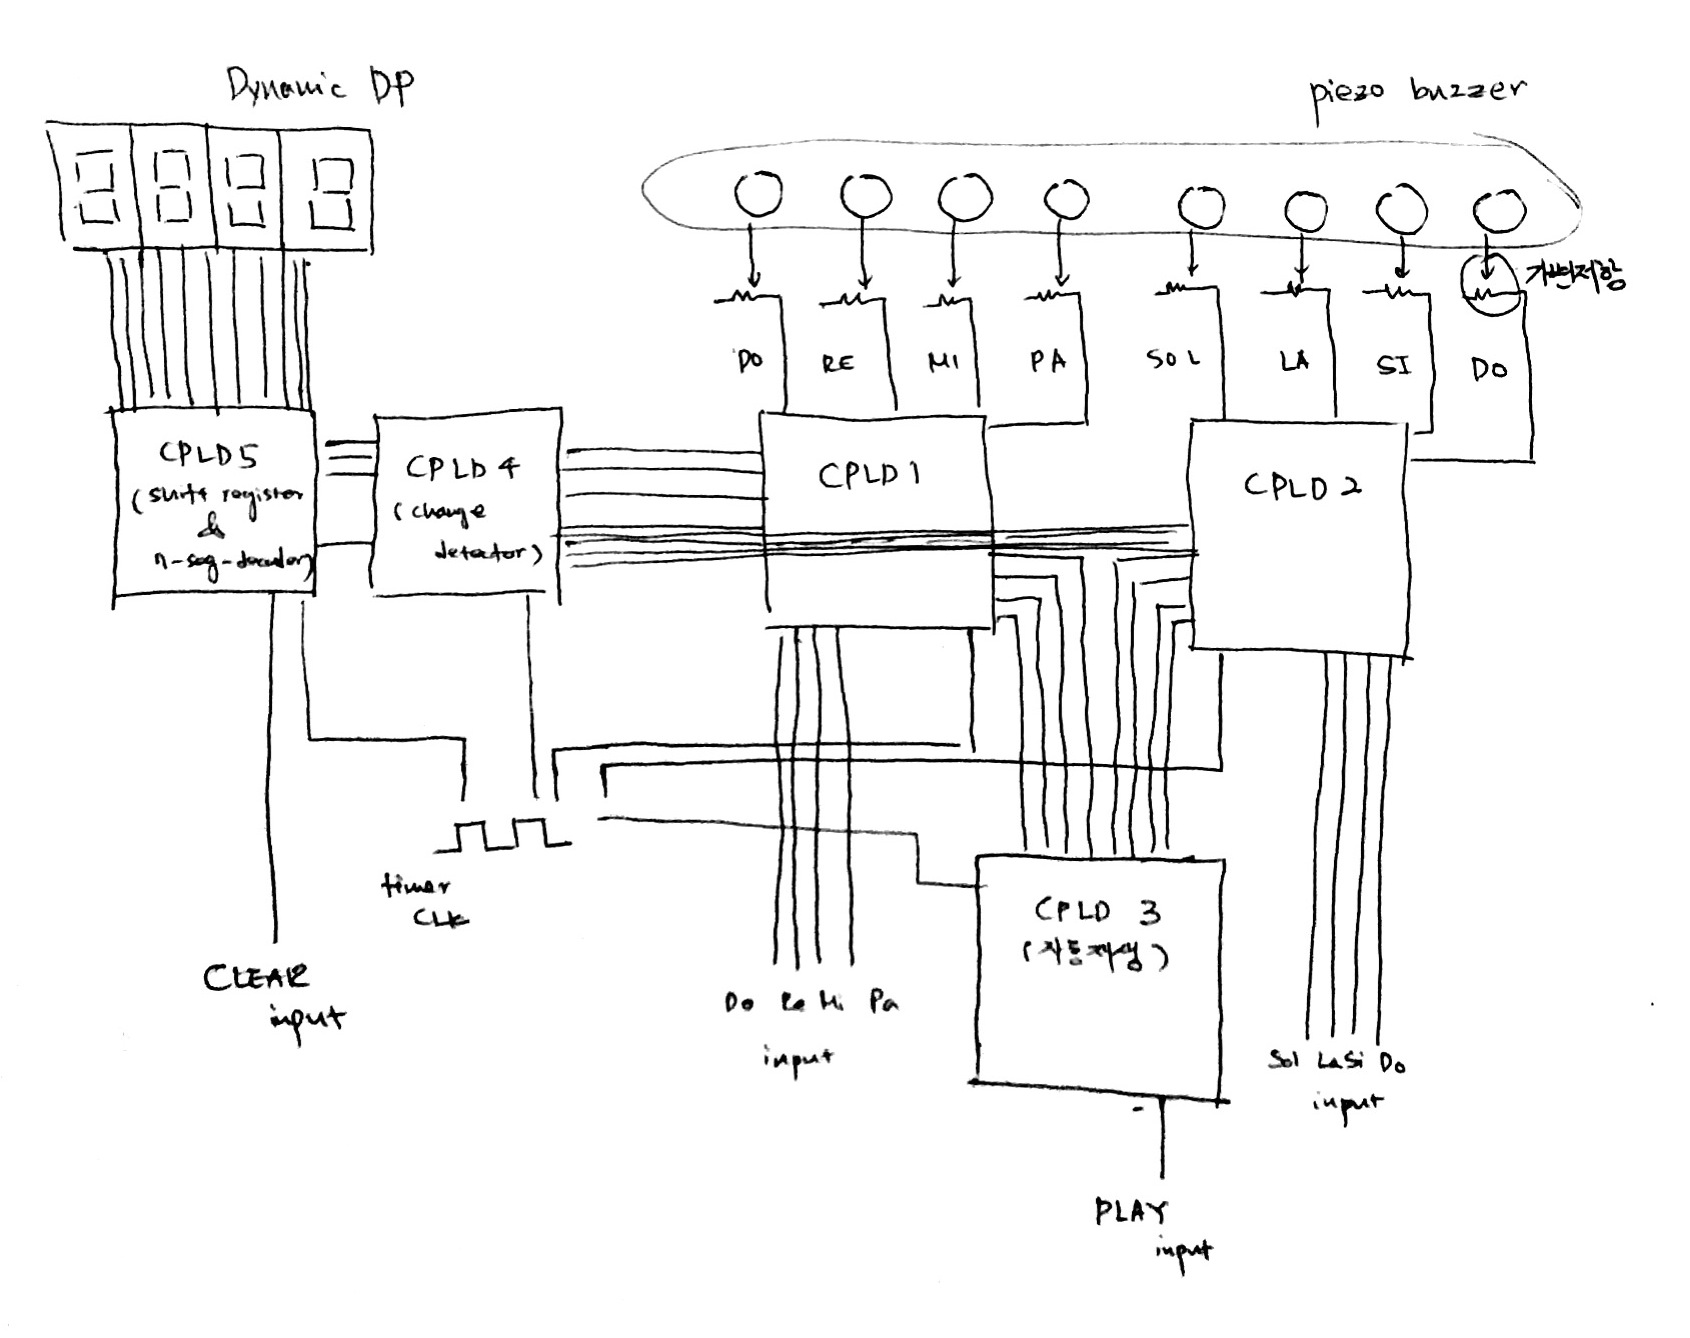 Dynamic DP
piezo buzzer
가변저항
DO RE MI PA SOL LA SI DO
CPLD5
(shift register
&
n-seg-decoder)
CPLD4
(change
detector)
CPLD1
CPLD2
timer
CLK
CPLD 3
(자동재생)
CLEAR
input
Do Re Mi Pa
input
Sol La Si Do
input
PLAY
input